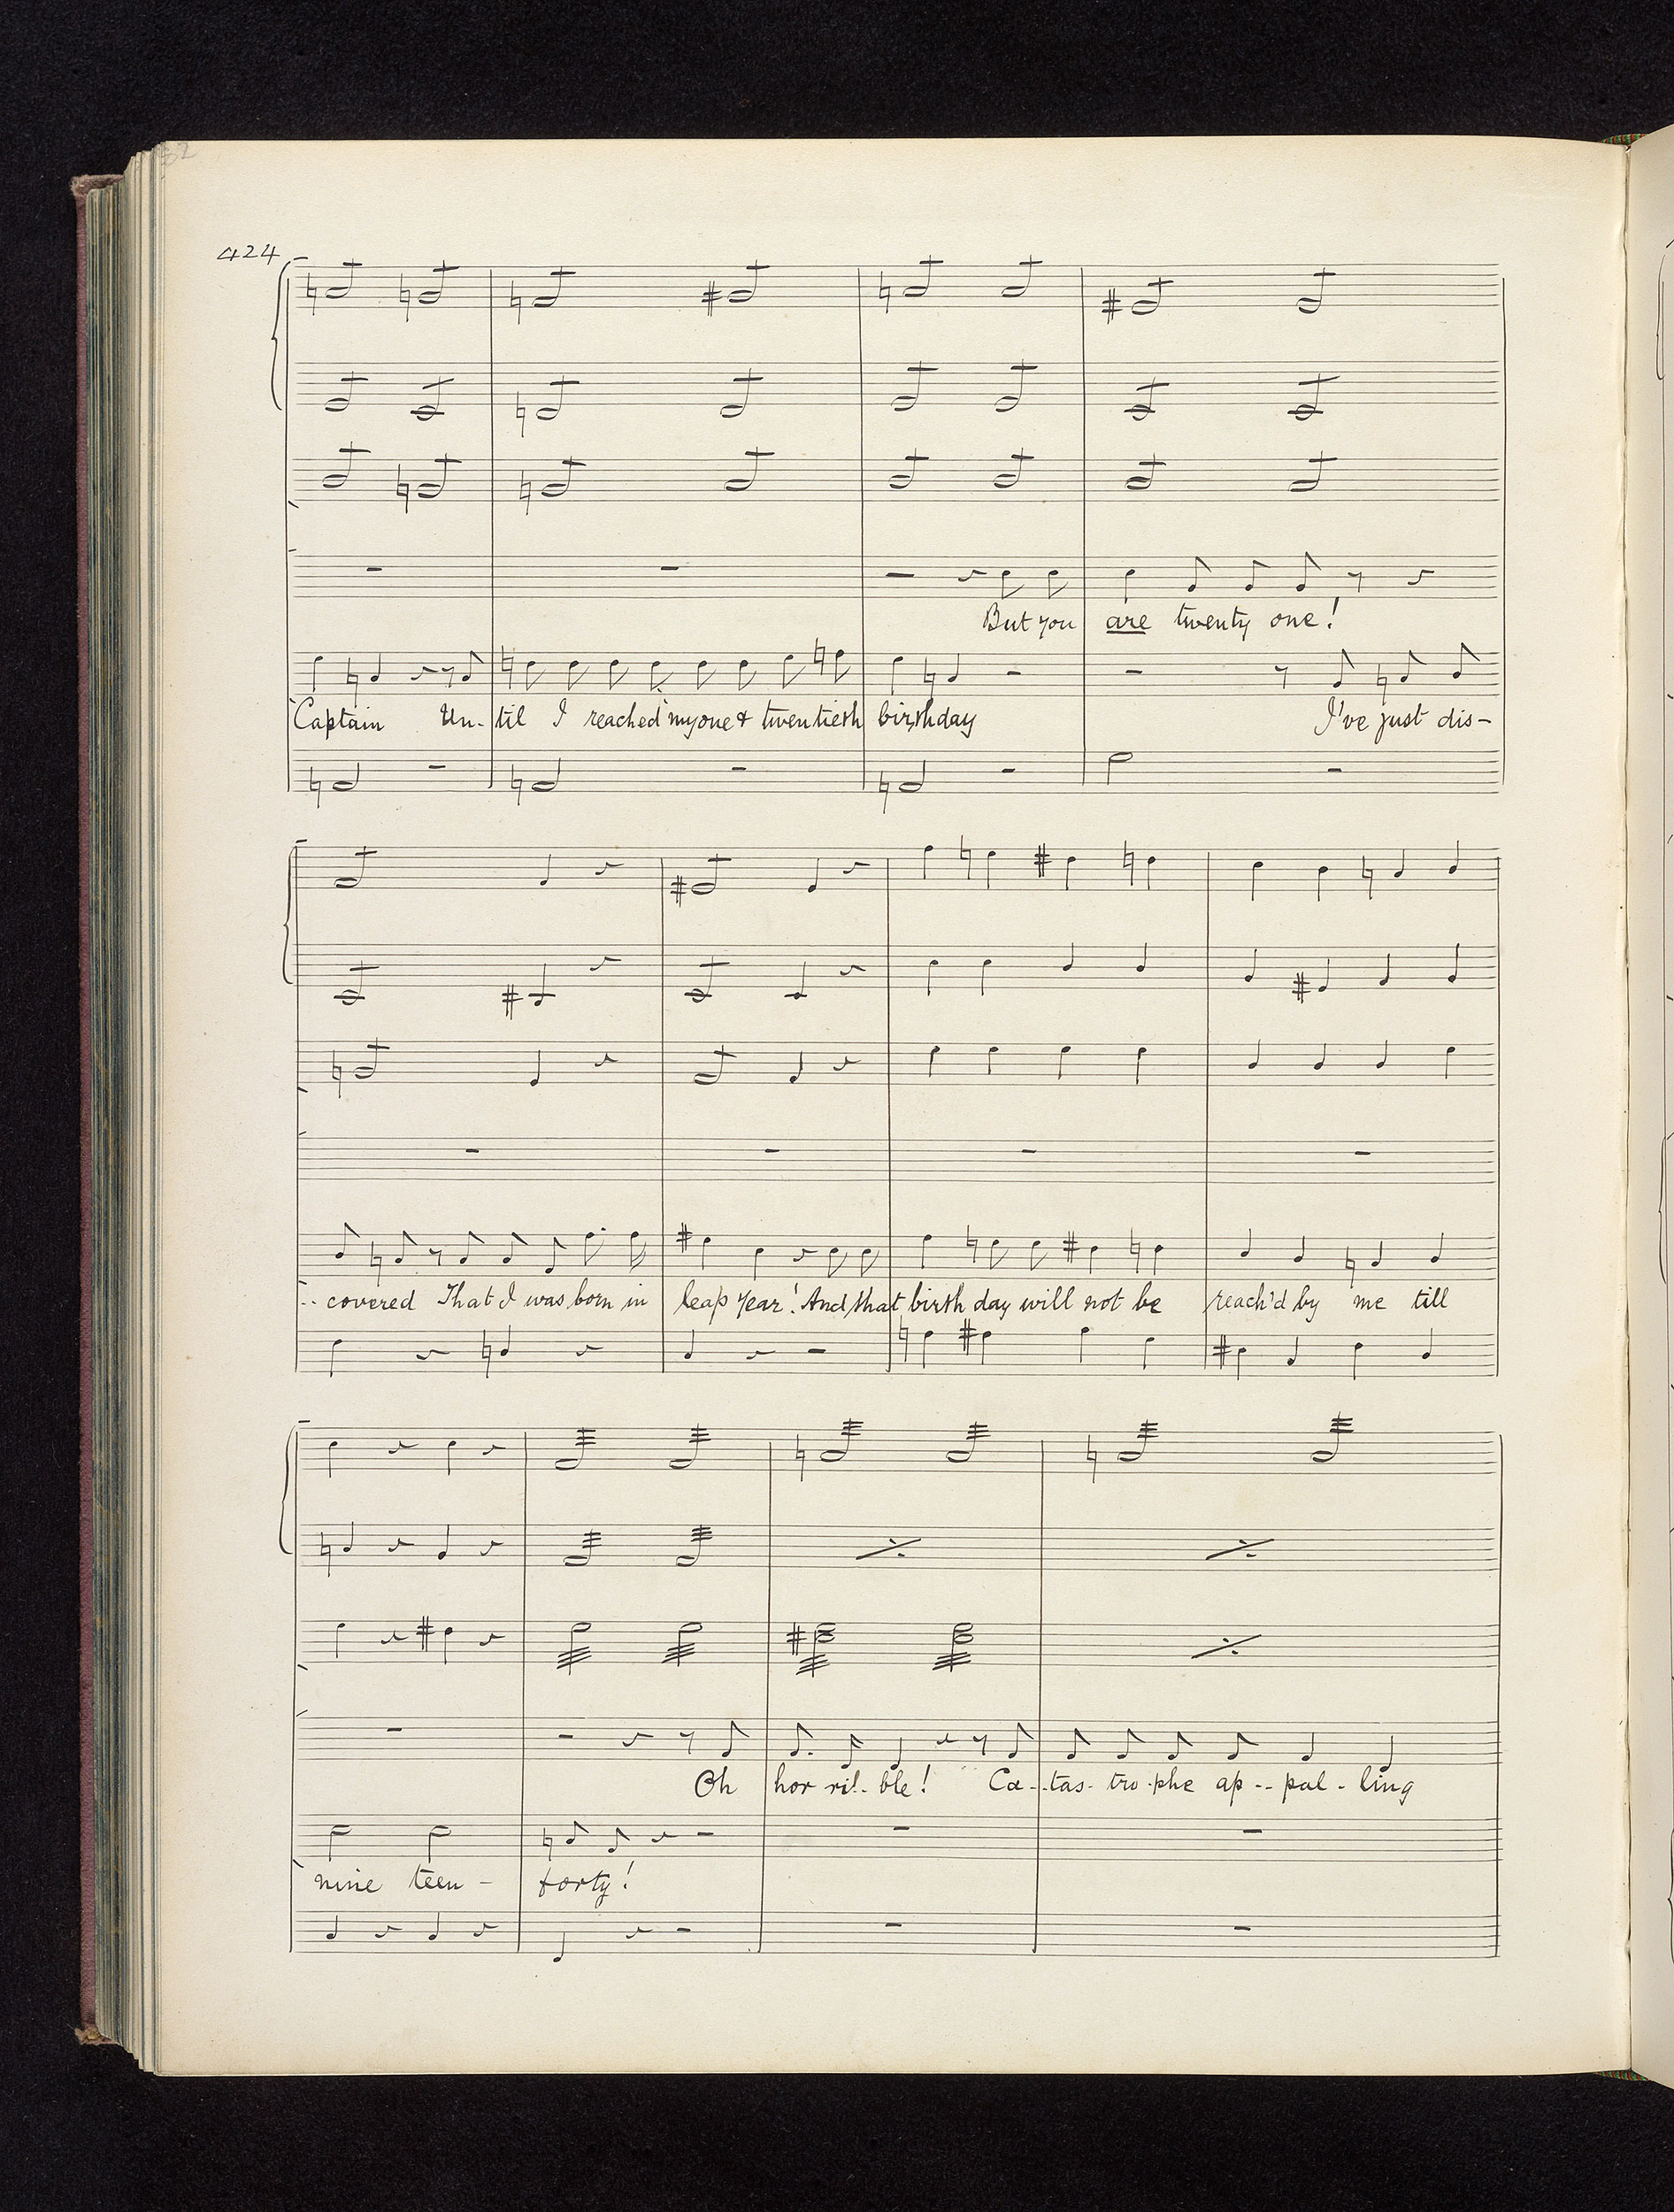 424
But you are twenty one!
Captain Un- til I reached my one & twentieth birthday I've just dis-
-- covered That I was born in leap year! And that birth day will not be reach'd by me till
Oh hor ri.. ble! Ca-- tas- tro- phe ap-- pal- ling
nine teen- forty!